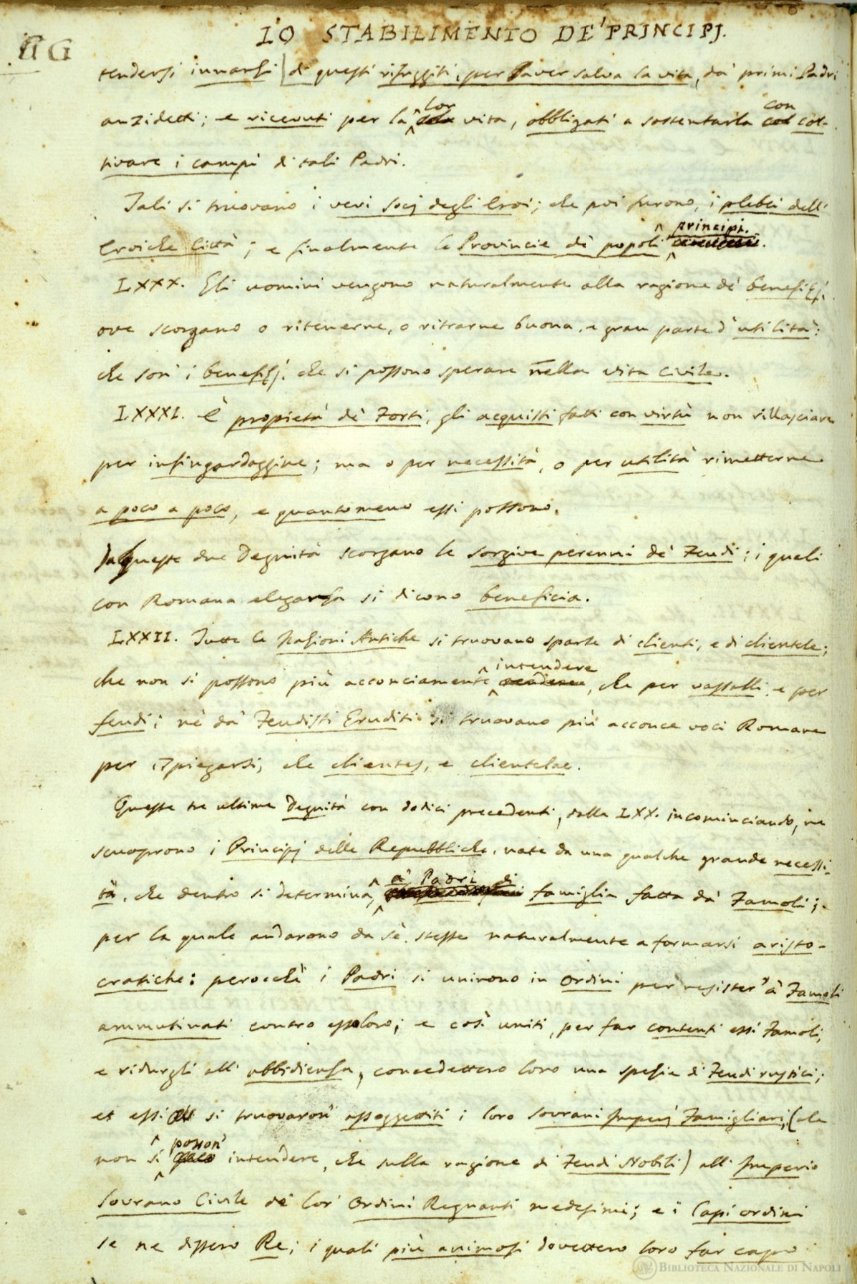 LO STABILIMENTO DE' PRINCIPJ.
tendersi innanzi di questi rifuggiti, per aver salva la vita, da' primi Padri
anzidetti; e ricevuti per la lor vita, obbligati a sostentarla con col-
tivare i campi di tali Padri.
Tali si truovano i veri socj degli Eroi; che poi furono, i plebei dell'
Eroiche Città; e finalmente le Provincie di popoli principi.
LXXX. Gli uomini vengono naturalmente alla ragione de' benefizj,
ove scorgano o ritenerne, o ritrarne buona, e gran parte d'utilità:
che son' i benefizj, che si possono sperare nella vita civile.
LXXXI. È propietà de' Forti, gli acquisti fatti con virtù non rillasciare
per infingardaggine; ma o per necessità, o per utilità rimetterne
a poco a poco, e quanto meno essi possono.
Da queste due Degnità scorgano le sorgive perenni de' Feudi; i quali
con Romana eleganza si dicono beneficia.
LXXII. Tutte le Nazioni Antiche si truovano sparte di clienti, e di clientele;
che non si possono più acconciamente intendere, che per vassalli, e per
feudi; nè da' Feudisti Eruditi si truovano più acconce voci Romane
per ispiegarsi, che clientes, e clientelae.
Queste tre ultime Degnità con dodici precedenti, dalla LXX. incominciando, ne
scuoprono i Principj delle Repubbliche, nate da una qualche grande necessi-
tà, che dentro si determina, a' Padri di famiglia fatta da' Famoli;
per la quale andarono da sè stesse naturalmente a formarsi aristo-
cratiche: perocchè i Padri si unirono in Ordini per resister' a' Famoli
ammutinati contro essoloro; e così uniti, per far contenti essi Famoli,
e ridurgli all' ubbidienza, concedettero loro una spezie di Feudi rustici;
et essi si truovaron' assoggettiti i loro Sovrani Imperj Famigliari, (che
non si posson' intendere, che sulla ragione di Feudi Nobili) all' Imperio
Sovrano Civile de' lor' Ordini Regnanti medesimi; e i Capi ordini
se ne dissero Re; i quali più animosi dovettero loro far capo
BIBLIOTECA NAZIONALE DI NAPOLI